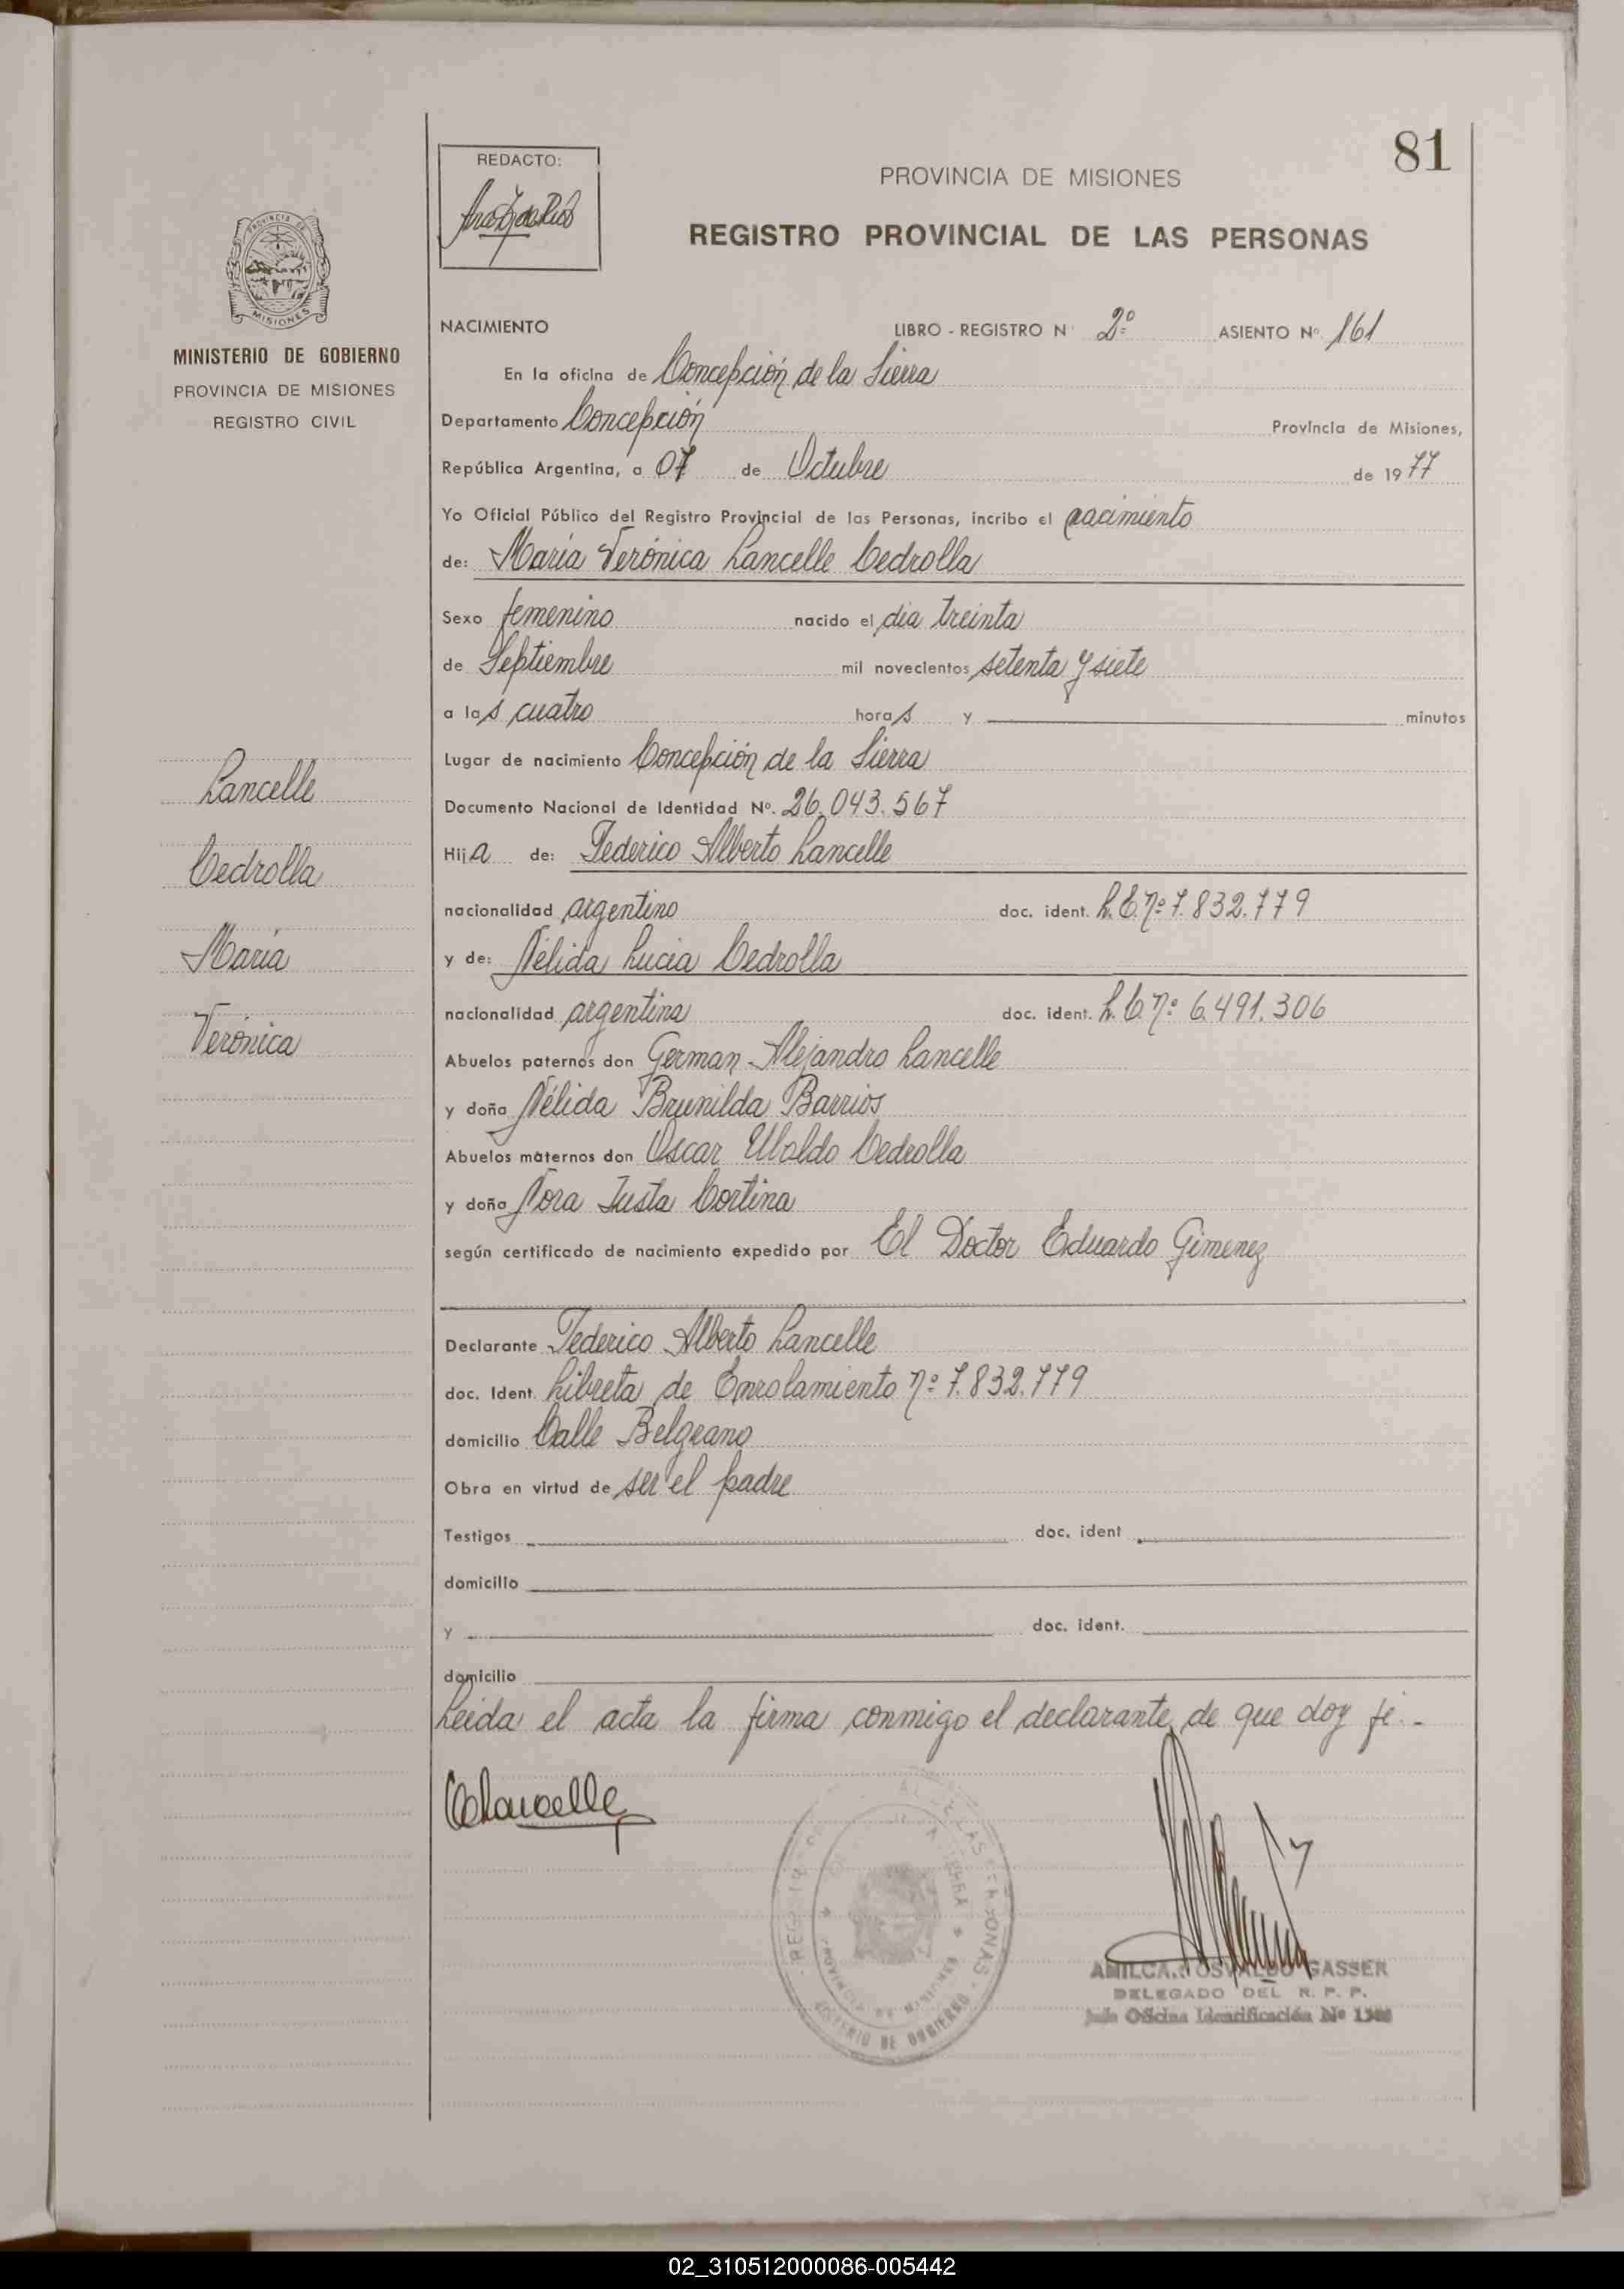 81
REDACTO:
PROVINCIA DE MISIONES
REGISTRO PROVINCIAL DE LAS PERSONAS
PROVINCIA DE
MISIONES
MINISTERIO DE GOBIERNO
PROVINCIA DE MISIONES
REGISTRO CIVIL
NACIMIENTO LIBRO - REGISTRO N° 2º ASIENTO Nº 161
En la oficina de Concepción de la Sierra
Departamento Concepción Provincia de Misiones,
República Argentina, a 07 de Octubre de 1977
Yo Oficial Público del Registro Provincial de las Personas, incribo el nacimiento
de: María Verónica Lancelle Cedrolla
Sexo femenino nacido el día treinta
de Septiembre mil novecientos setenta y siete
a las cuatro horas y minutos
Lugar de nacimiento Concepción de la Sierra
Documento Nacional de Identidad Nº. 26.043.567
Hija de: Federico Alberto Lancelle
nacionalidad argentino doc. ident. L.E. nº 7.832.779
y de: Nélida Lucia Cedrolla
nacionalidad argentina doc. ident. L.C. nº 6.491.306
Abuelos paternos don German Alejandro Lancelle
y doña Nélida Brunilda Barrios
Abuelos maternos don Oscar Ubaldo Cedrolla
y doña Nora Justa Cortina
según certificado de nacimiento expedido por El Doctor Eduardo Gimenez
Declarante Federico Alberto Lancelle
doc. Ident. Libreta de Enrolamiento nº 7.832.779
domicilio Calle Belgrano
Obra en virtud de ser el padre
Testigos doc. ident
domicilio
y doc. ident.
domicilio
Leida el acta la firma conmigo el declarante, de que doy fé.-
Lancelle
Cedrolla
María
Verónica
PROVINCIA DE MISIONES
MINISTERIO DE GOBIERNO
AMILCAR OSVALDO GASSER
DELEGADO DEL R. P. P.
Jefe Oficina Identificación Nº
02_310512000086-005442